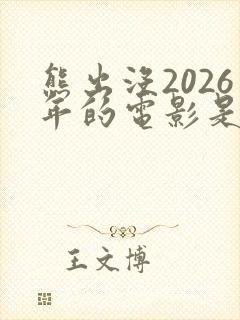 熊出没2026
年的电影是
王文博